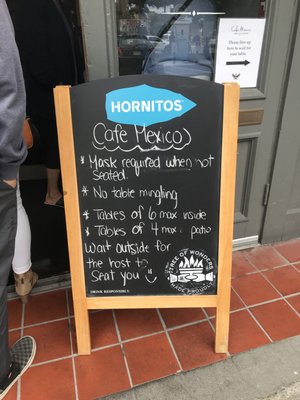 HORNITOS
Cafe Mexico
* Mask required when not
seated.
* No table mingling
* Tables of 6 max inside
* Tables of 4 max. patio
Wait outside for
the host to
Seat you
TREE OF WONDERS
DRINK RESPONSIBLY
Cafe Mexico
Please line up
here to wait
for your table